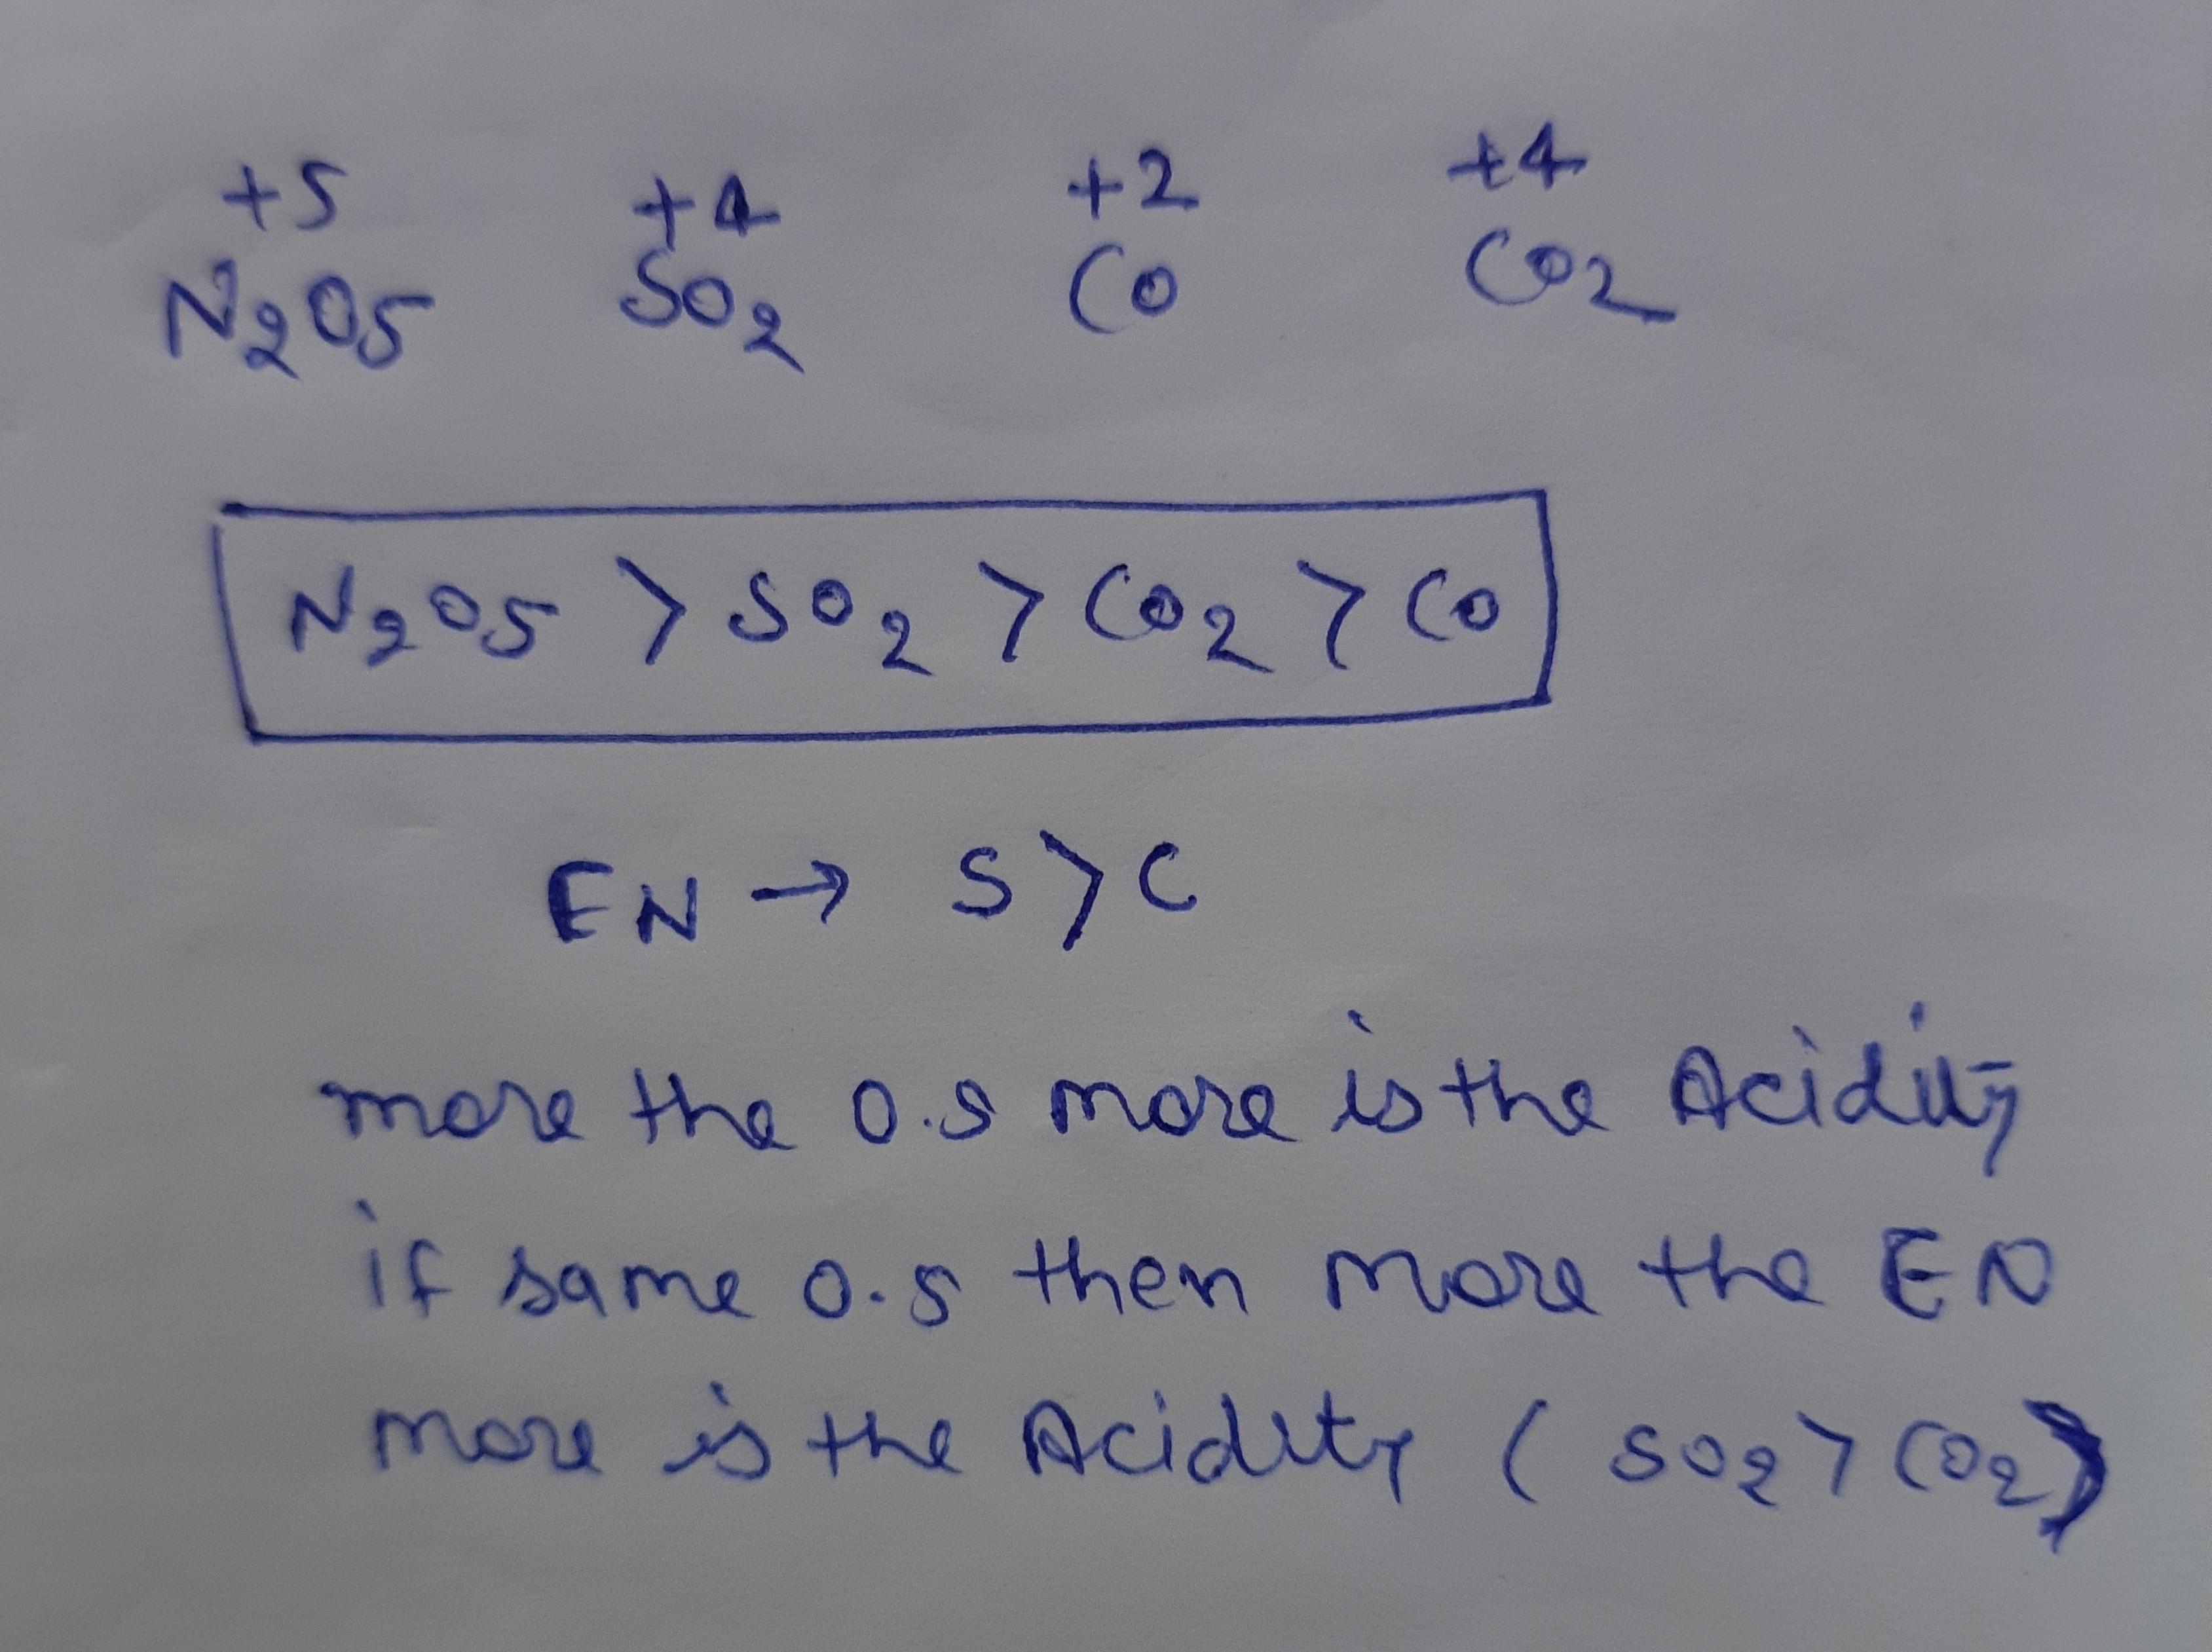 +5 +4 +2 +4
N2O5 SO2 CO CO2
N2O5 > SO2 > CO2 > CO
EN → S > C
more the O.S more is the Acidity
if same O.S then more the EN
more is the Acidity ( SO2 > CO2)